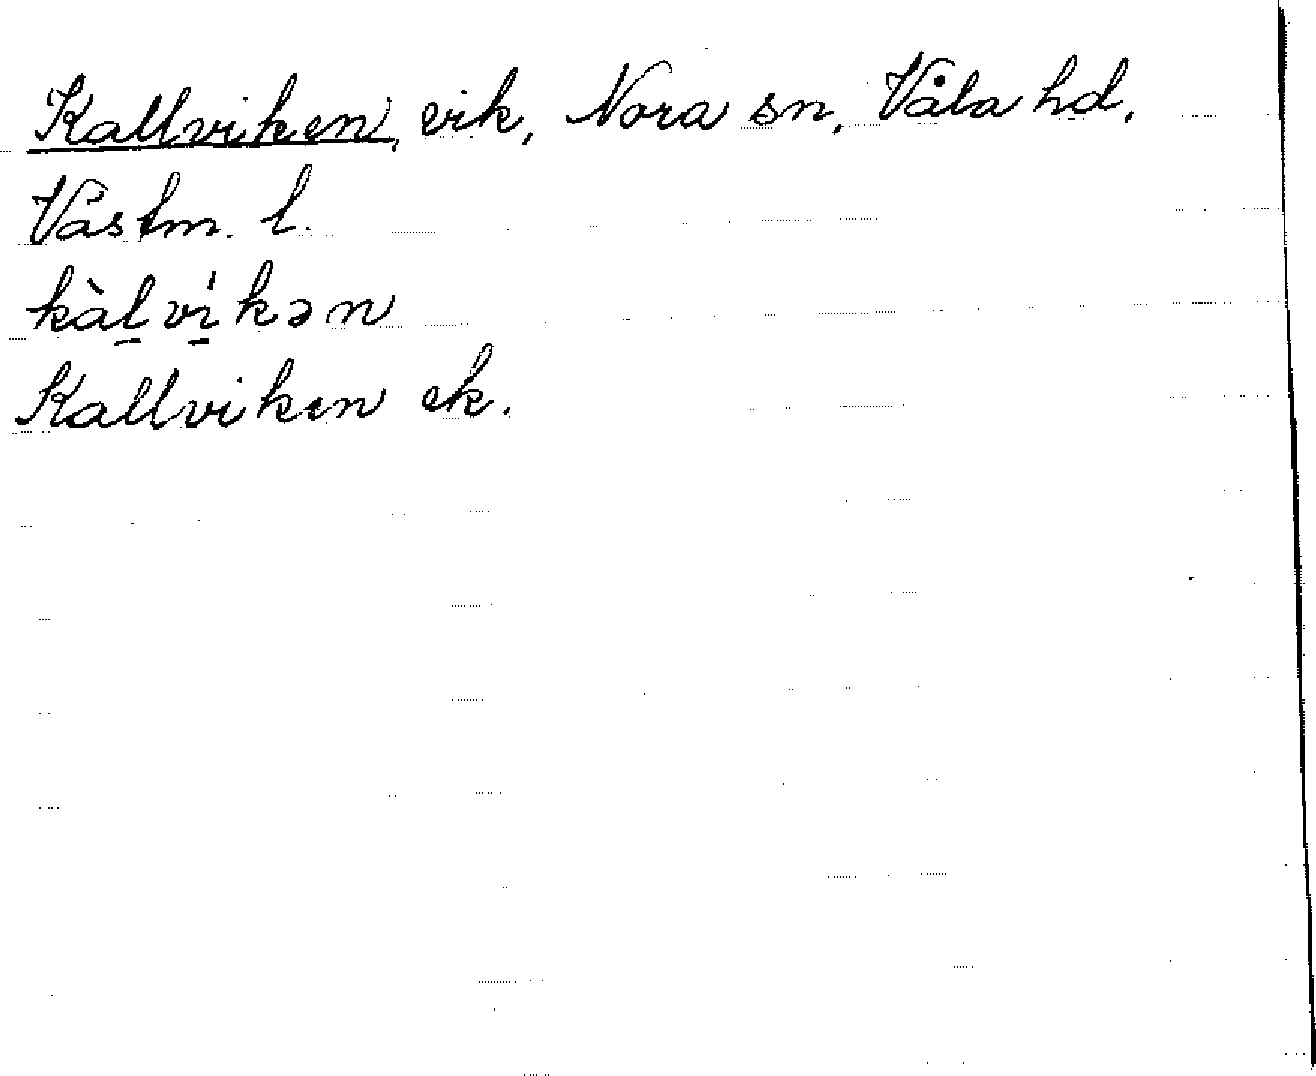 Kallviken, vik, Nora sn, Våla hd,
Västm. l.
kàl̠vi̠̍kən
Kallviken ek.